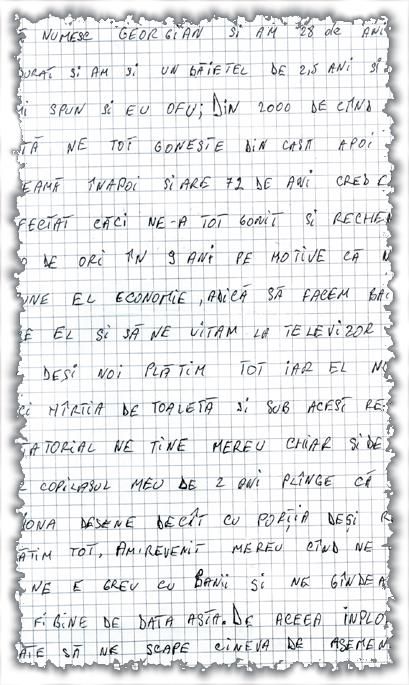 NUMESC GEORGIAN SI AM 28 de ANI
SI AM SI UN BĂIETEL DE 2,5 ANI SI
SPUN SI EU OFU; DIN 2000 DE CÎND
NE TOT GONEȘTE DIN CASĂ APOI
ÎNAPOI SI ARE 72 DE ANI CRED
CĂCI NE-A TOT GONIT SI RECHEM
DE ORI ÎN 9 ANI PE MOTIVE CĂ
EL ECONOMIE, ADICĂ SĂ FACEM
EL SI SĂ NE UITAM LA TELEVIZOR
DESI NOI PLĂTIM TOT IAR EL
HÎRTIA DE TOALETĂ SI SUB ACEST
NE TINE MEREU CHIAR SI DE
COPILASUL MEU DE 2 ANI PLÎNGE CĂ
DESENE DECÎT CU PORȚIA DEȘI
TOT, AM REVENIT MEREU CÎND NE
NE E GREU CU BANII ȘI NE GÎNDEA
FI BINE DE DATA ASTA. DE ACEEA INPLO
SĂ NE SCAPE CINEVA DE ASEMEN